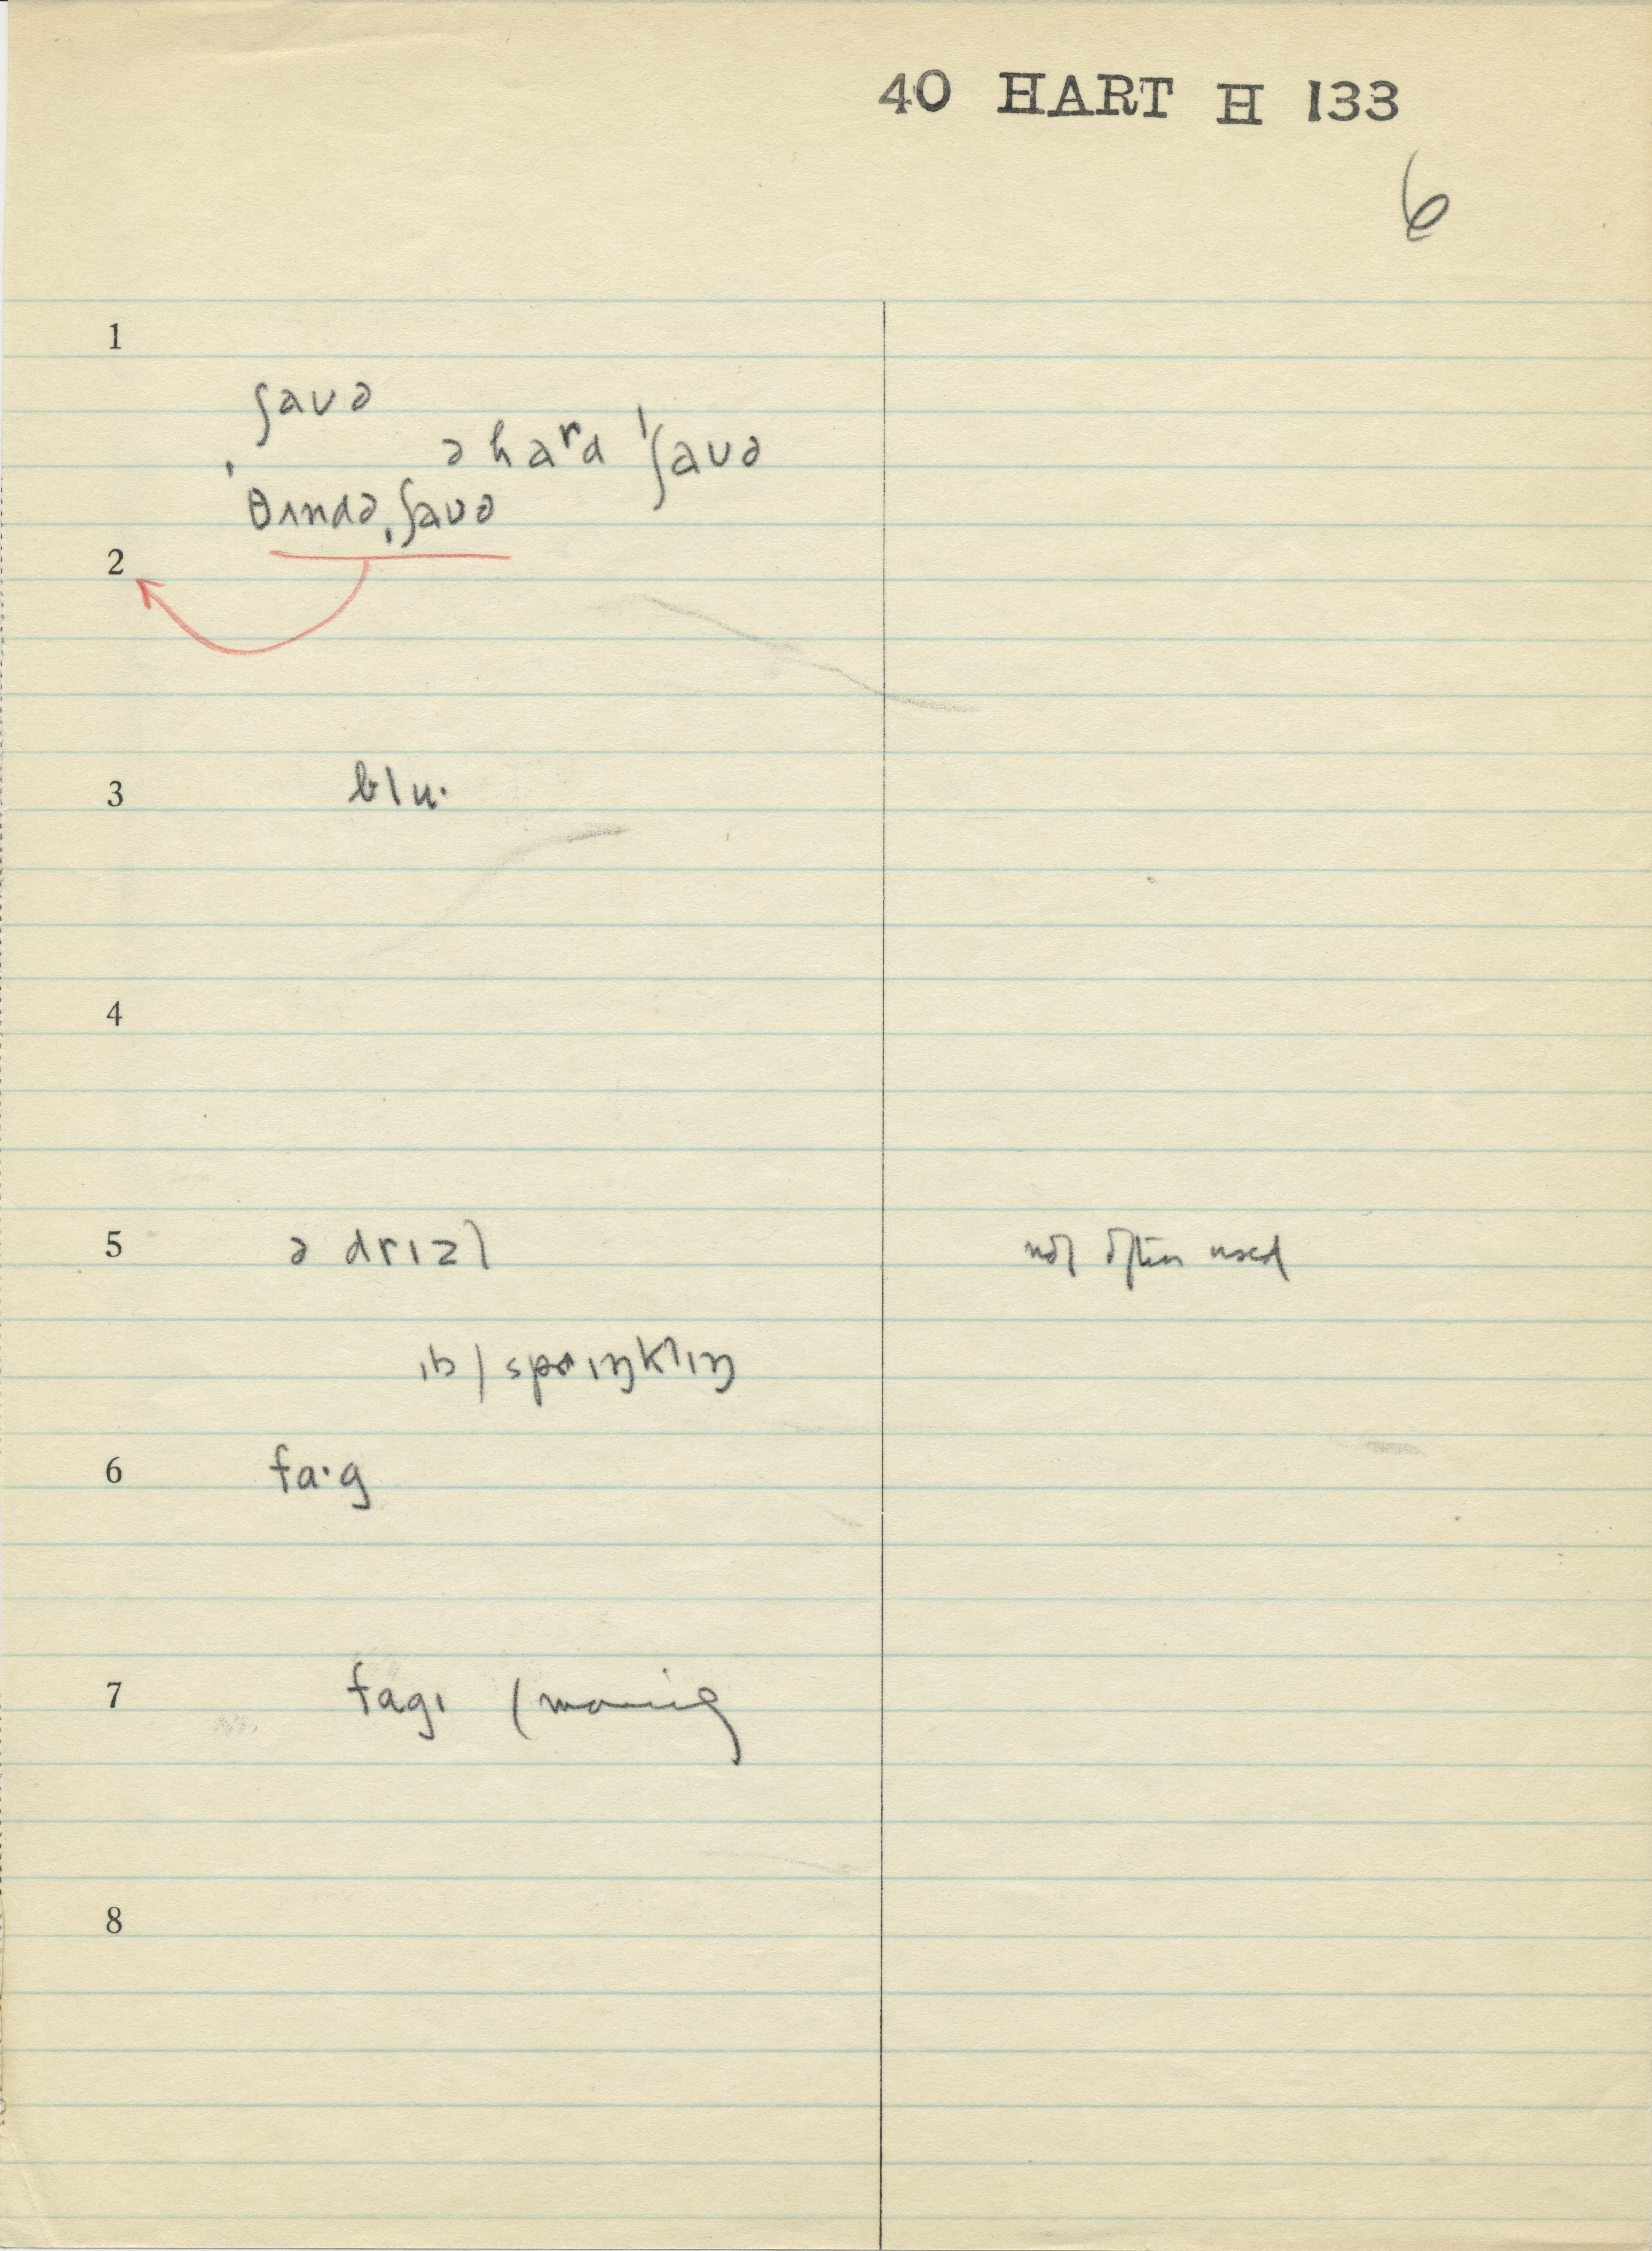 40 HART H 133
6
1
ʃauə
ə haʳd ˈʃauə
ˈθʌndəˌʃauə
2
3 blu·
4
5 ə drɪzl not often used
ɪb / sprɪŋklɪŋ
6 fa·g
7 fagɪ (morning
8